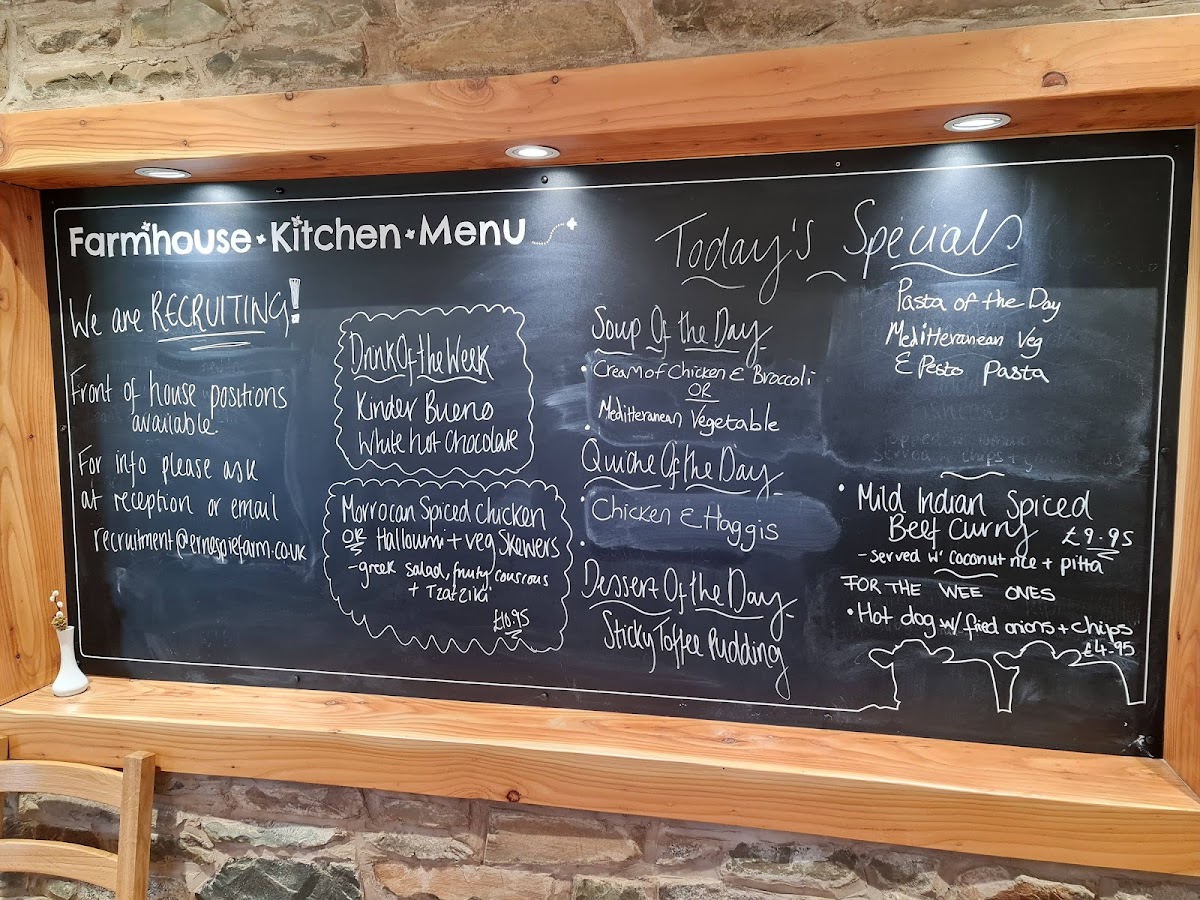 Farmhouse • Kitchen • Menu
We are RECRUITING!
Front of house positions
available.
For info please ask
at reception or email
recruitment@ernespiefarm.co.uk
Drink Of the Week
Kinder Bueno
White hot chocolate
Morrocan Spiced chicken
OR Halloumi + veg Skewers
- greek salad, fruity couscous
+ Tzatziki
£10.95
Today's Specials
Soup Of the Day
• Cream of Chicken & Broccoli
OR
• Meditteranean Vegetable
Quiche Of the Day
Chicken & Haggis
Dessert Of the Day
Sticky Toffee Pudding
Pasta of the Day
Meditteranean Veg
& Pesto Pasta
• Mild Indian Spiced
Beef Curry £9.95
- served w' coconut rice + pitta
FOR THE WEE ONES
• Hot dog w/ fried onions + chips
£4.95